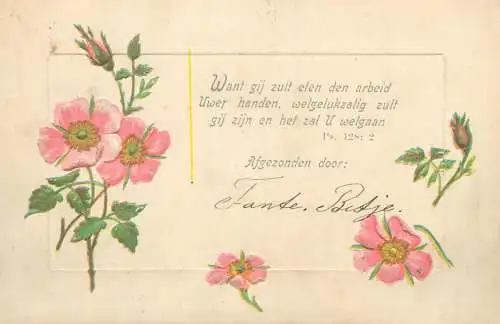 Want gij zult eten den arbeid
Uwer handen, welgelukzalig zult
gij zijn en het zal U welgaan
Ps. 128: 2
Afgezonden door:
Tante. Betje.